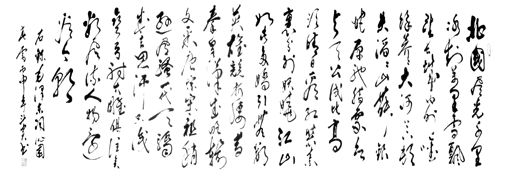 北國風光千里
冰封萬里雪飄
望長城內外惟
餘莽莽大河上下頓
失滔滔山舞銀
蛇原馳蠟象欲
與天公試比高
須晴日看紅裝素
裹分外妖嬈江山
如此多嬌引無數
英雄競折腰惜
秦皇漢武略輸
文采唐宗宋祖稍
遜風騷一代天驕
成吉思汗只識
彎弓射大雕俱往矣
數風流人物還
看今朝
右錄毛澤東詞沁園
春雪